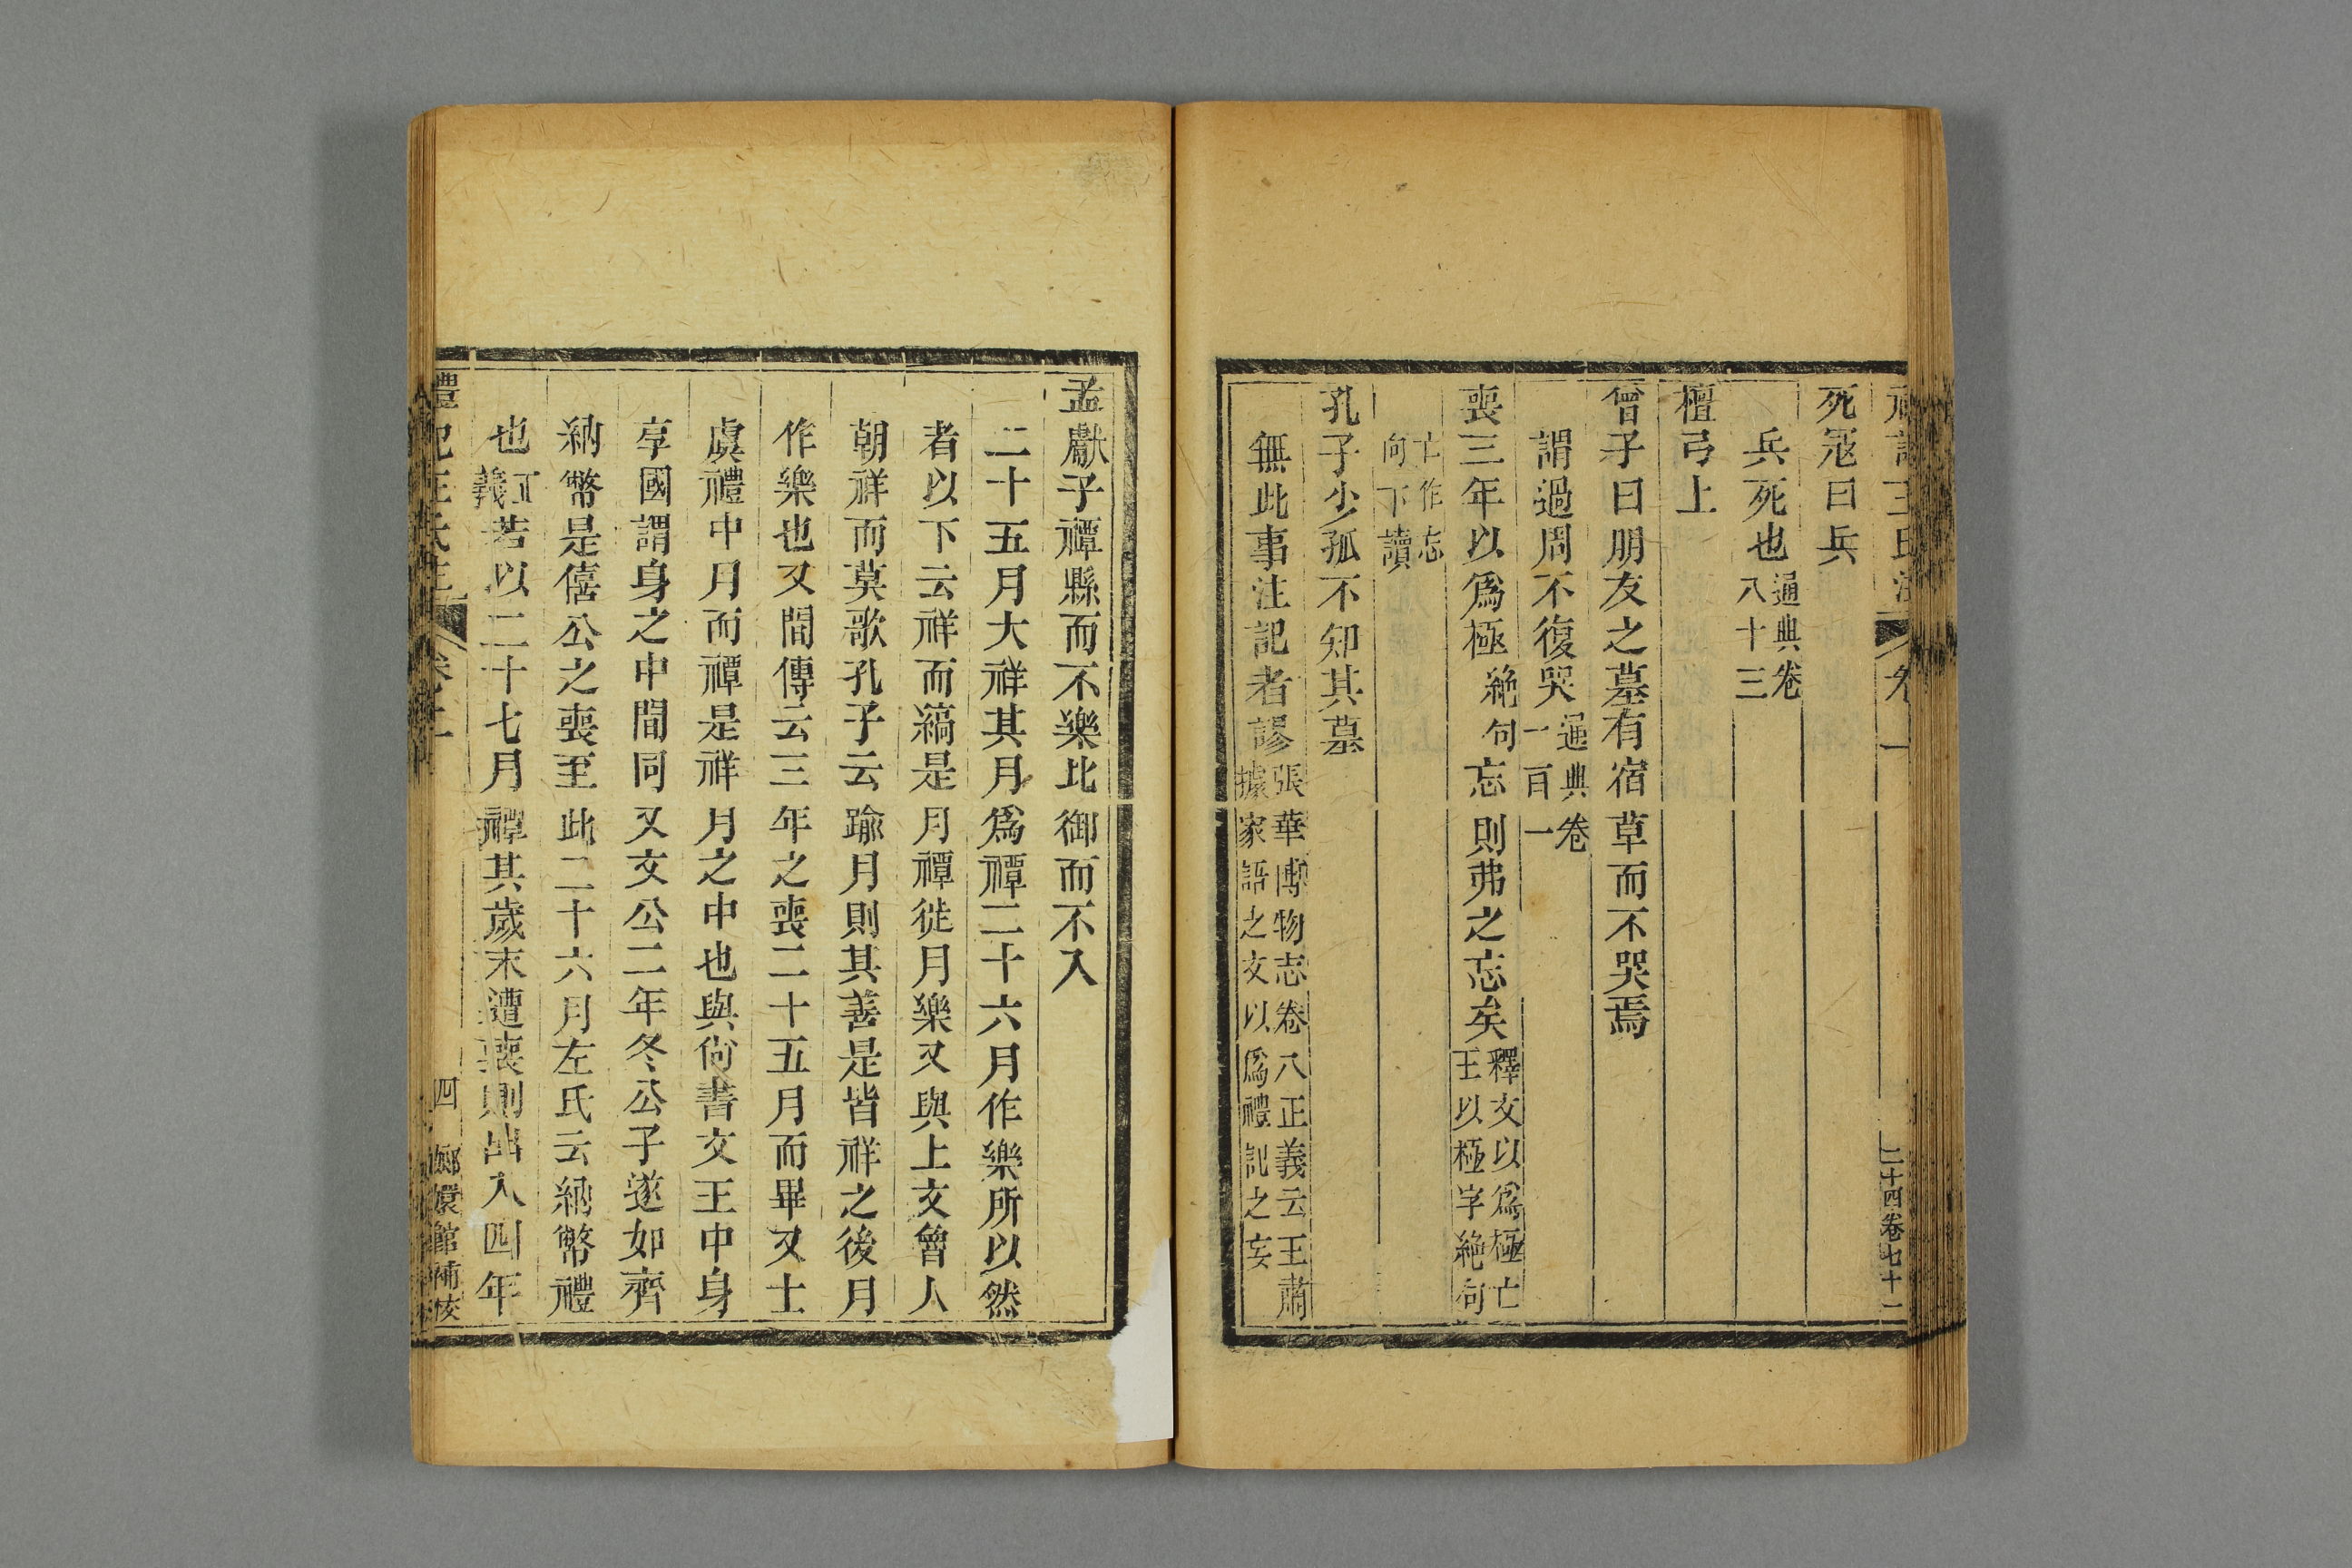 禮記王氏注 卷一 二十四卷七十一
死寇曰兵
兵死也通典卷八十三
檀弓上
曾子曰朋友之墓有宿草而不哭焉
謂過周不復哭通典卷一百一
喪三年以爲極絶句忘則弗之忘矣釋文以爲極亡王以極字絶句
亡作忘向下讀
孔子少孤不知其墓
無此事注記者謬張華博物志卷八正義云王肅據家語之文以爲禮記之妄
孟獻子禫縣而不樂比御而不入
二十五月大祥其月爲禫二十六月作樂所以然
者以下云祥而縞是月禫徙月樂又與上文魯人
朝祥而莫歌孔子云踰月則其善是皆祥之後月
作樂也又間傳云三年之喪二十五月而畢又士
虞禮中月而禫是祥月之中也與尙書文王中身
享國謂身之中間同又文公二年冬公子遂如齊
納幣是僖公之喪至此二十六月左氏云納幣禮
也正義若以二十七月禫其歲末遭喪則出入四年
禮記王氏注 卷一 四 嫏嬛館補校